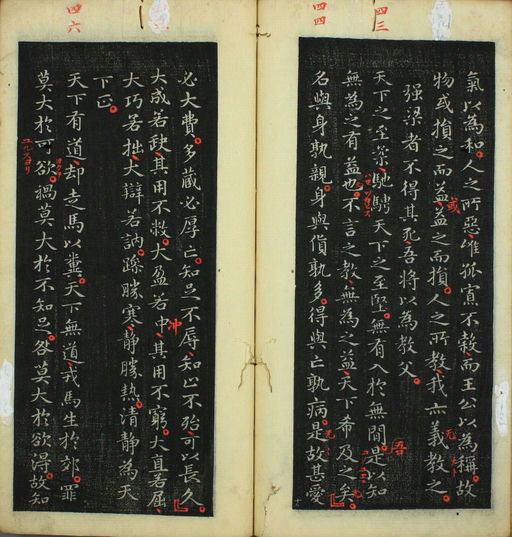 四三
四四
氣以為和人之所惡唯孤寡不穀而王公以為稱故
物或損之而益益之而損人之所教我亦義教之
或
強梁者不得其死吾將以為教父
天下之至柔馳騁天下之至堅無有入於無間是以知
吾
無為之有益也不言之教無為之益天下希及之矣
名與身孰親身與貨孰多得與亡孰病是故甚愛
四六
必大費多藏必厚亡知足不辱知止不殆可以長久
大成若缺其用不敝大盈若中其用不窮大直若屈
冲
大巧若拙大辯若訥躁勝寒靜勝熱清靜為天
下正
天下有道却走馬以糞天下無道戎馬生於郊罪
莫大於可欲禍莫大於不知足咎莫大於欲得故知